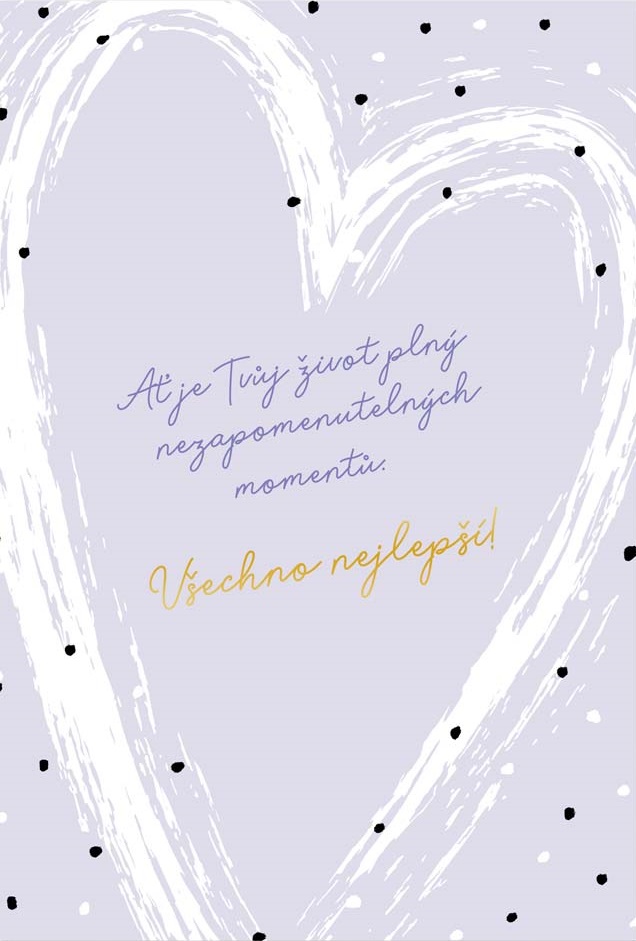 Ať je Tvůj život plný
nezapomenutelných
momentů.
Všechno nejlepší!